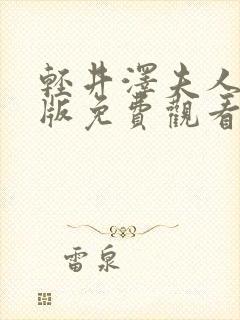 輕井澤夫人
版免費觀看
雷泉